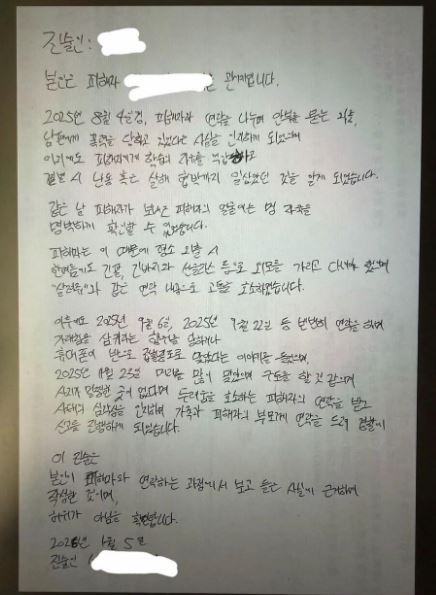 진술인:
본인은 피해자 관계입니다.
2025년 8월 4일경, 피해자와 연락을 나누며 안부를 묻는 기일,
남편에게 폭력을 당하고 있었다는 사실을 인지하게 되었으며
이 피해자에게
결별 시 난동 혹은 살해 협박까지 일삼았던 것을 알게 되었습니다.
같은 날 피해자가 보내온 피해자의 얼굴에는 멍 자국을
명백하게 확인할 수 있었습니다.
피해자는 이 때문에 평소 외출 시
한여름에도 긴팔, 긴바지와 선글라스 등으로 외모를 가리고 다녀야 했으며
"살려줘"와 같은 연락 내용으로 고통을 호소하였습니다.
이후에도 2025년 9월 6일, 2025년 9월 22일 등 빈번히 연락을 하며
당하거나
휴대폰이 맞았다는 이야기를 들었으며,
2025년 11월 25일 머리를 많이 맞았으며 구토를 할 것 같으며
두려움을 호소하는 피해자의 연락을 받고
사태의 심각성을 인지하여 가족과 피해자의 부모에게 연락을 드려 경찰에
신고를 진행하게 되었습니다.
이 진술은
본인이 피해자와 연락하는 과정에서 보고 들은 사실에 근거하여
작성한 것이며,
허위가 아님을 확인합니다.
2026년 1월 5일
진술인